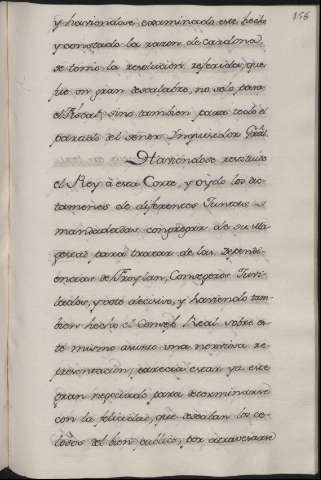 156
y haviendose examinado este hecho
y constado la razon de cardona,
se tomó la resolucion referida, que
fue un gran descalabro, no solo para
el Fiscal, sino tambien para todo el
partido del señor Inquisidor Gral.
Haviendose restituido
el Rey à esta Corte, y oydo los dic-
tamenes de diferentes Juntas
mandadas congregar de su Ma-
gestad para tratar de las dependi-
encias de Froylan, Consegeros Juvi-
lados, y voto decisivo, y haviendo tam-
bien hecho el Consejo Real sobre es-
te mismo asunto una nerviosa re-
presentacion, parecia estar ya este
gran negociado para determinarse
con la felicidad, que deseaban los ce-
losos del bien publico, por atravesarse